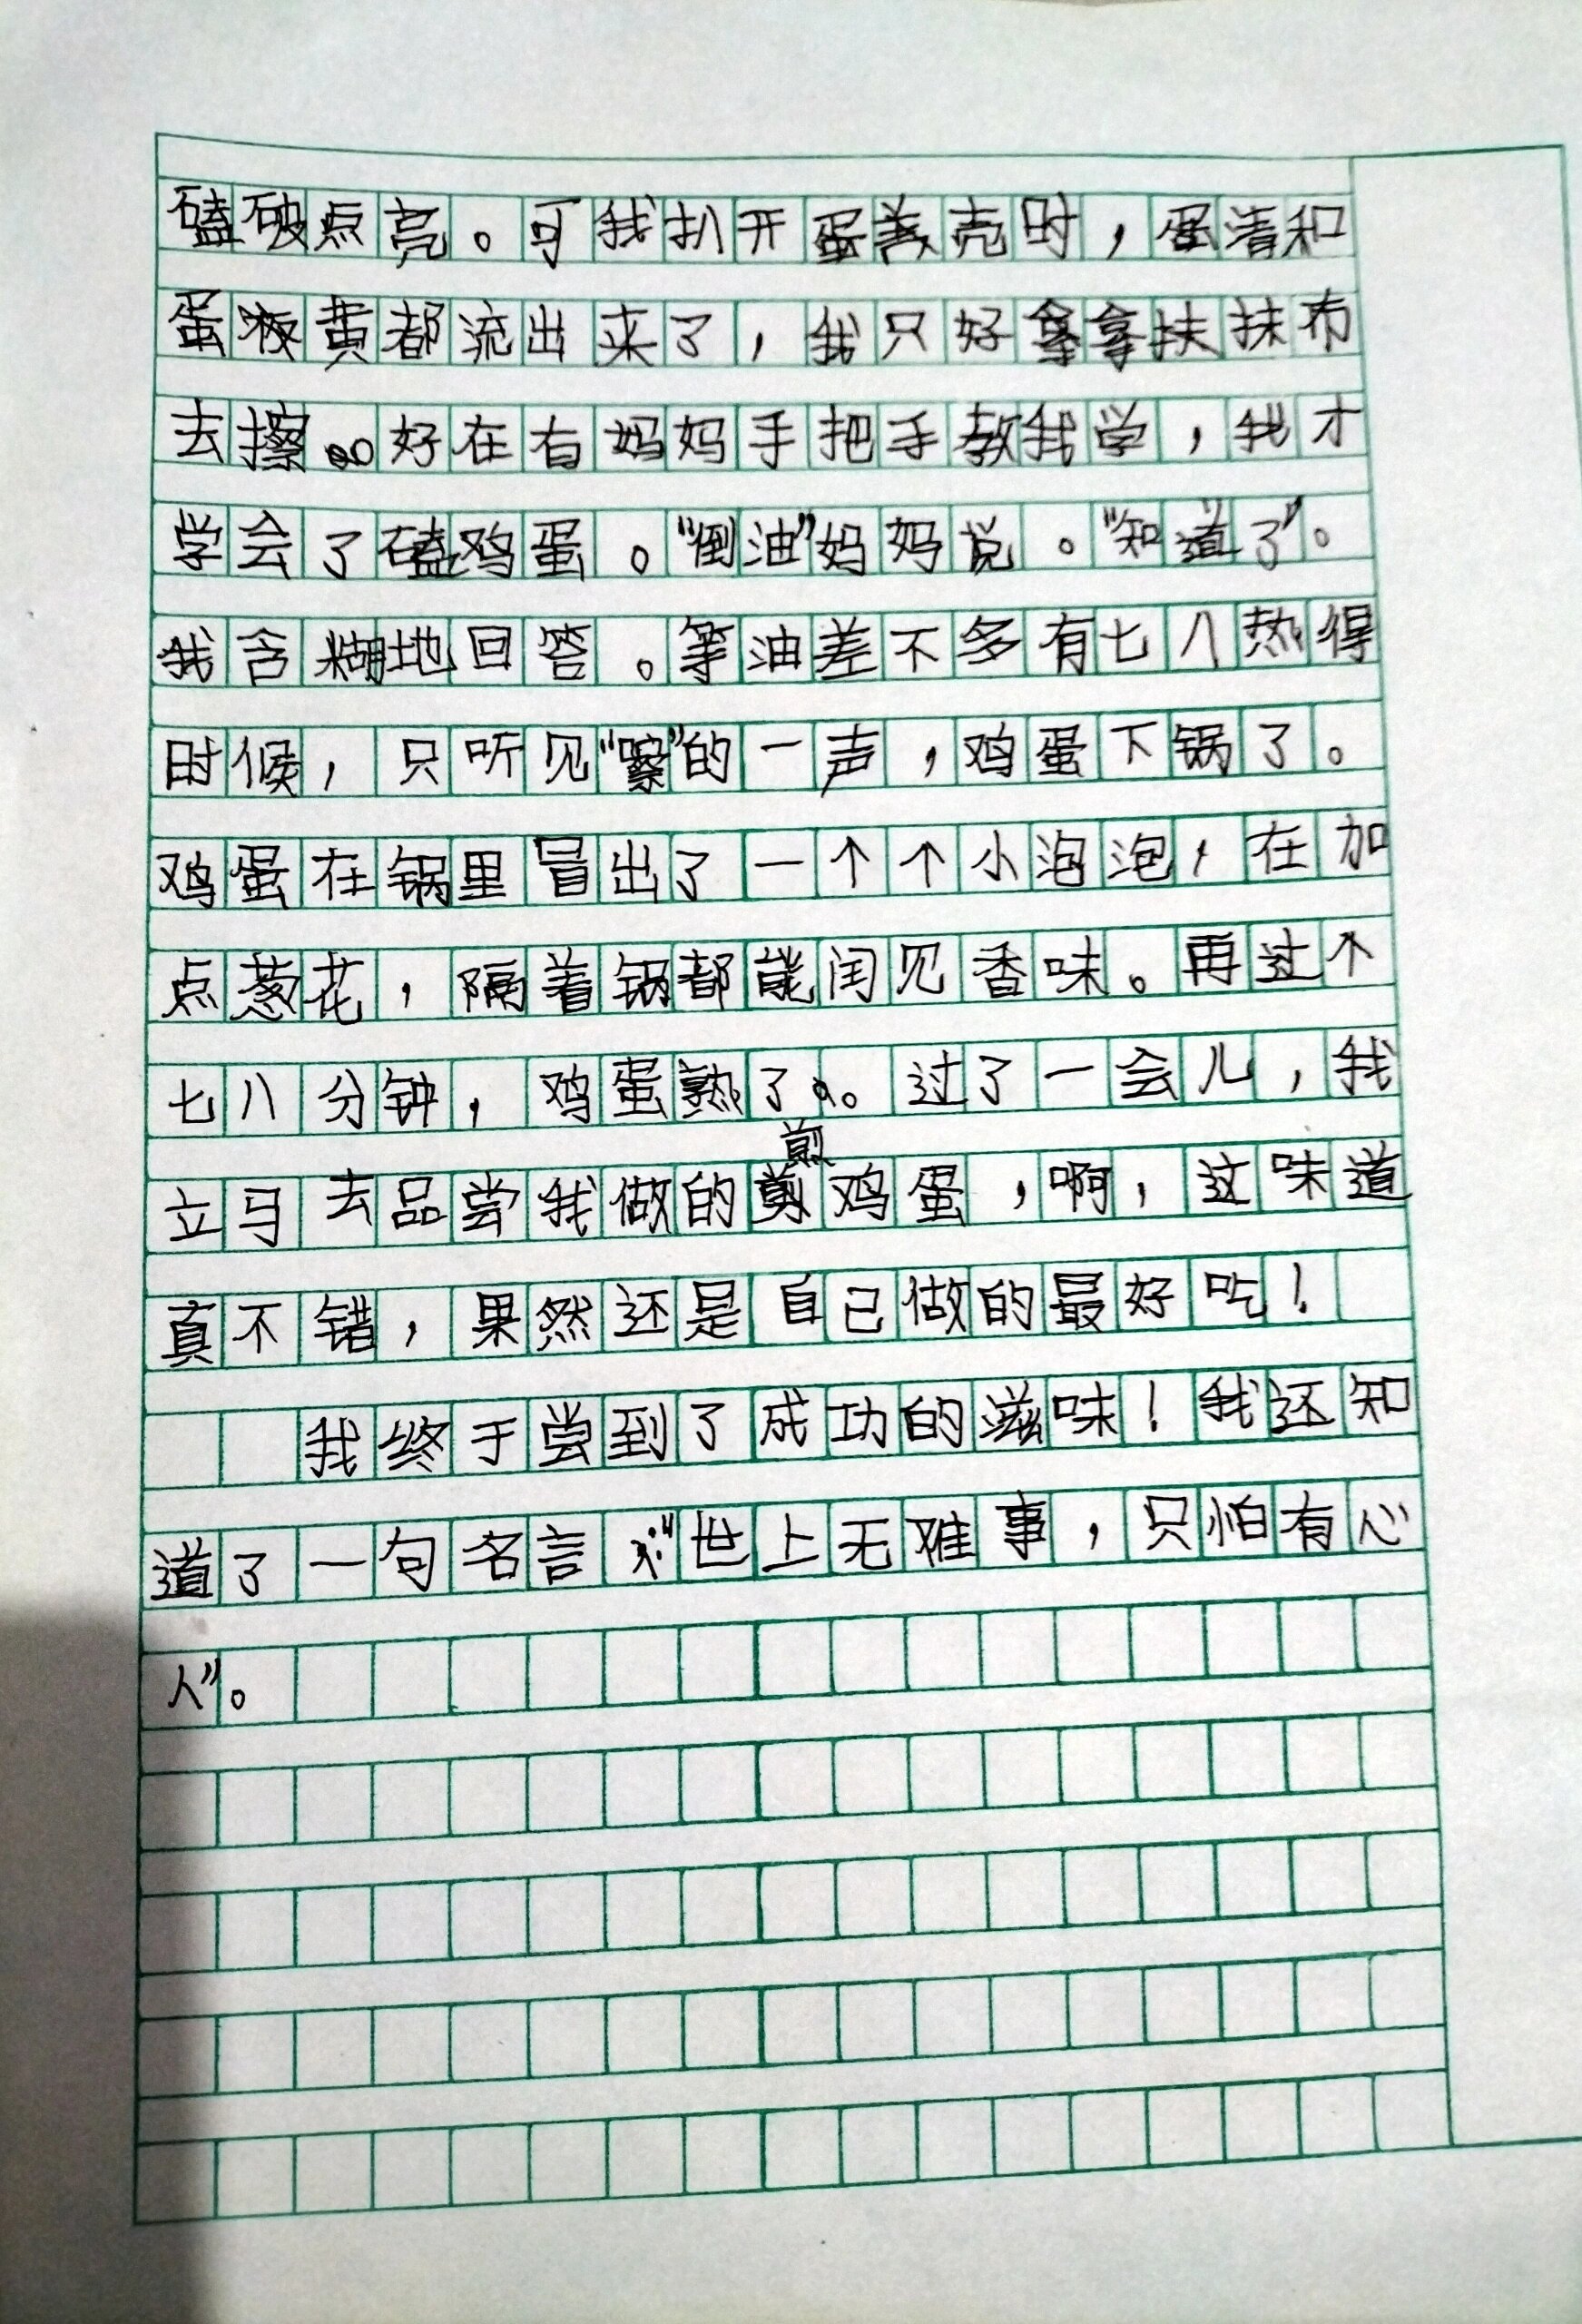 磕破点亮。可我扒开蛋壳时，蛋清和
蛋黄都流出来了，我只好拿扶扶布
去擦。好在有妈妈手把手教我学，我才
学会了磕鸡蛋。“倒油”妈妈说。“知道了”。
我含糊地回答。等油差不多有七八热得
时候，只听见“嚓”的一声，鸡蛋下锅了。
鸡蛋在锅里冒出了一个个小泡泡，在加
点葱花，隔着锅都能闻见香味。再过个
七八分钟，鸡蛋熟了。过了一会儿，我
立马去品尝我做的煎鸡蛋，啊，这味道
真不错，果然还是自己做的最好吃！
我终于尝到了成功的滋味！我还知
道了一句名言：“世上无难事，只怕有心
人”。